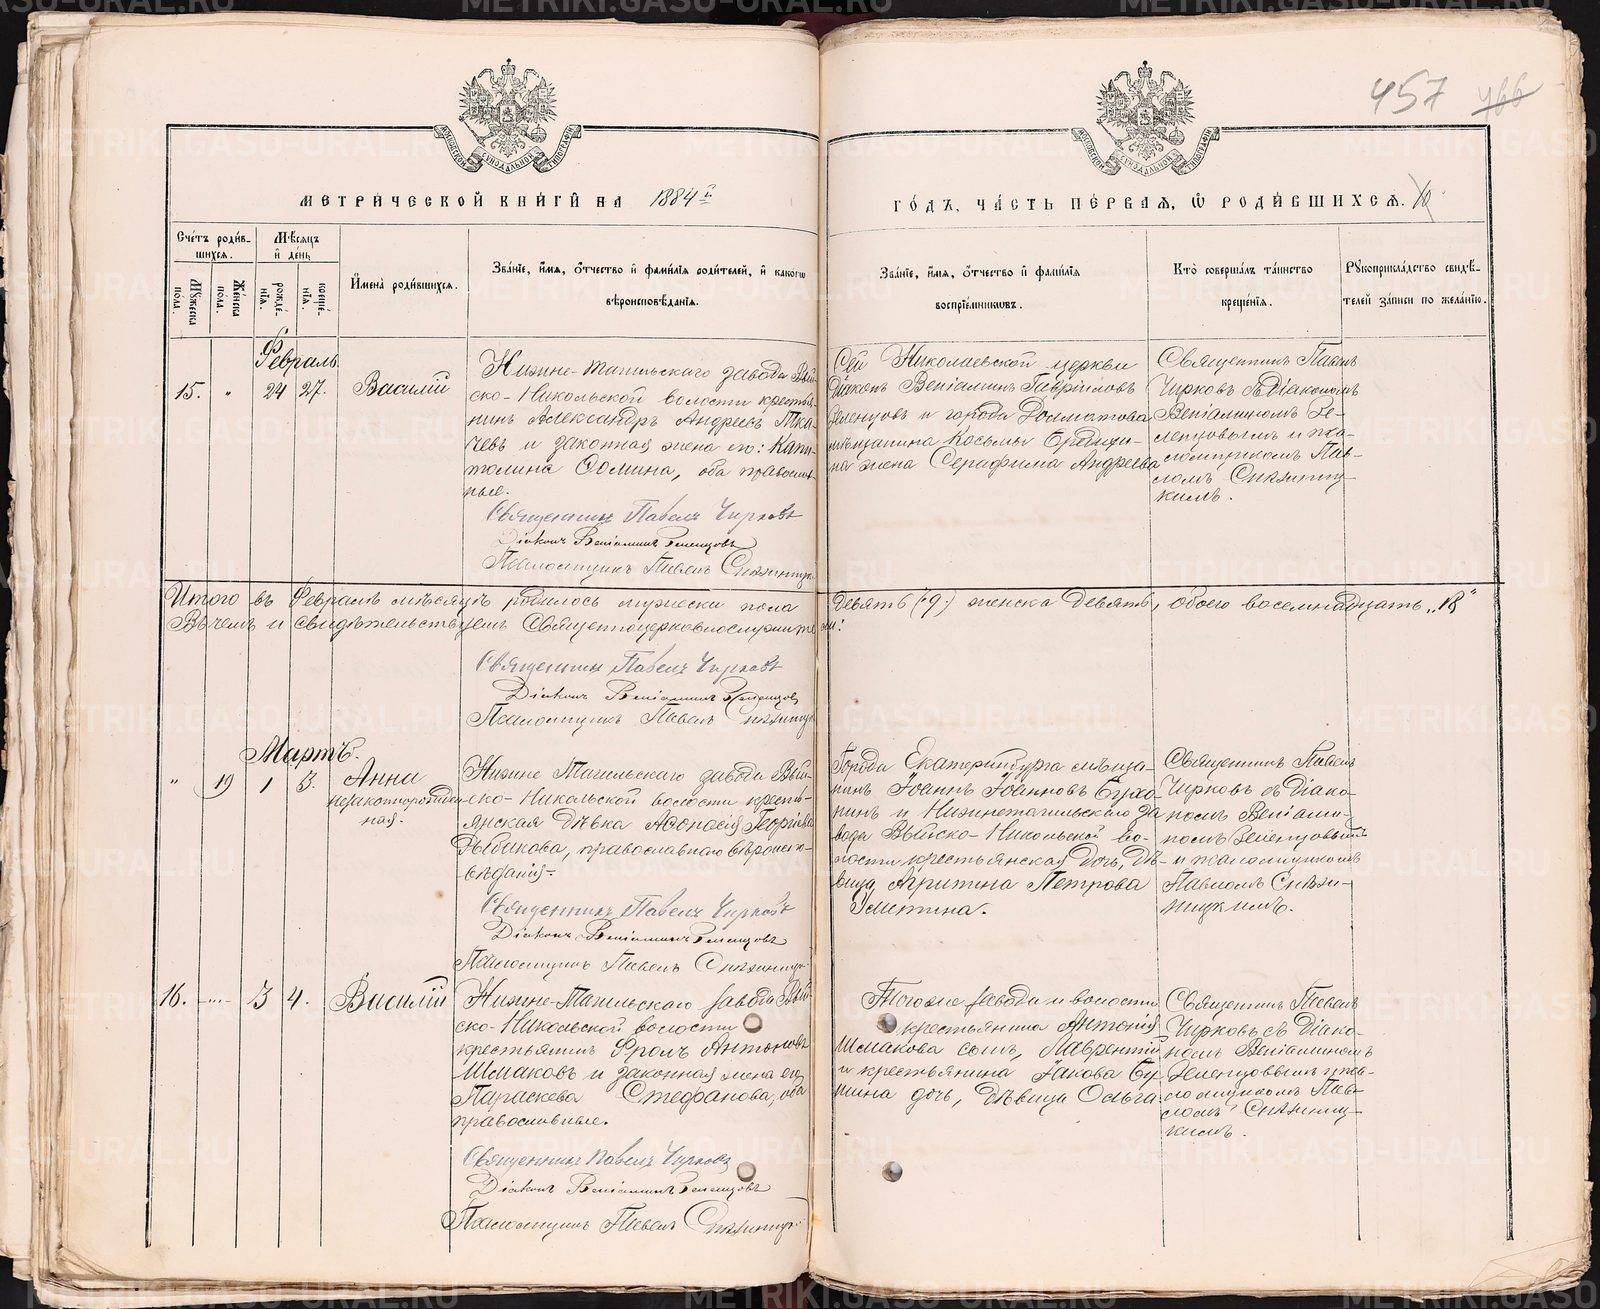 457 466
МЕТРИЧЕСКОЙ КНИГИ НА 1884й
ГОДЪ, ЧАСТЬ ПЕРВАЯ, Ѿ РОДИВШИХСЯ.
МОСКОВСКОЙ СИНОДАЛЬНОЙ ТИПОГРАФІИ
МОСКОВСКОЙ СИНОДАЛЬНОЙ ТИПОГРАФІИ
Счетъ родив-
шихся.
Мѣсяцъ
и день
Мужеска пола.
Женска пола.
рожде-
нія.
креще-
нія.
Имена родившихся.
Званіе, имя, отчество и фамилія родителей, и какого
вѣроисповѣданія.
Званіе, имя, отчество и фамилія
воспріемниковъ.
Кто совершалъ таинство
крещенія.
Рукоприкладство свидѣ-
телей записи по желанію.
Февраль
15. " 24 27. Василій
Нижне-Тагильскаго завода Вый-
ско-Никольской волости крестья-
нинъ Александръ Андреевъ Тка-
чевъ и законная жена его: Капи-
толина Фомина, оба православ-
ные.
Священникъ Павелъ Чирковъ
Діаконъ Веніаминъ Зеленцовъ
Псаломщикъ Павелъ
Сей Николаевской церкви
Діаконъ Веніаминъ Гавріиловъ
Зеленцовъ и города Долматова
мѣщанина Косьмы
жена Серафима Андреева
Священникъ Павелъ
Чирковъ съ Діакономъ
Веніаминомъ Зе-
ленцовымъ и пса-
ломщикомъ Пав-
ломъ
Итого въ Февралѣ мѣсяцѣ родилось мужеска пола
девять (9.) женска девять, обоего восемнадцать „18"
Въ чемъ и свидѣтельствуемъ Священноцерковнослужители:
Священникъ Павелъ Чирковъ
Діаконъ Веніаминъ Зеленцовъ
Псаломщикъ Павелъ
Мартъ.
" 19 1 3. Анна
незаконнорожден-
ная.
Нижне Тагильскаго завода Вый-
ско-Никольской волости кресть-
янская дѣвка Афанасія Георгіева
православнаго вѣроиспо-
вѣданія.
Священникъ Павелъ Чирковъ
Діаконъ Веніаминъ Зеленцовъ
Псаломщикъ Павелъ
Города Екатеринбурга мѣща-
нинъ Іоаннъ Іоанновъ
и Нижнетагильскаго за-
вода Выйско-Никольской во-
лости крестьянская дочь, дѣ-
вица Агрипина Петрова
Священникъ Павелъ
Чирковъ съ Діако-
номъ Веніами-
номъ Зеленцовымъ
и псаломщикомъ
Павломъ
16. " 3 4. Василій
Нижне-Тагильскаго завода Вый-
ско-Никольской волости
крестьянинъ Фролъ Антоновъ
Шмаковъ и законная жена его
Параскева Стефанова, оба
православные.
Священникъ Павелъ Чирковъ
Діаконъ Веніаминъ Зеленцовъ
Псаломщикъ Павелъ
Того же завода и волости
крестьянина Антонія
Шмакова сынъ, Лаврентій
и крестьянина Іакова
дочь, дѣвица Ольга.
Священникъ Павелъ
Чирковъ съ Діако-
номъ Веніаминомъ
Зеленцовымъ и пса-
ломщикомъ Пав-
ломъ